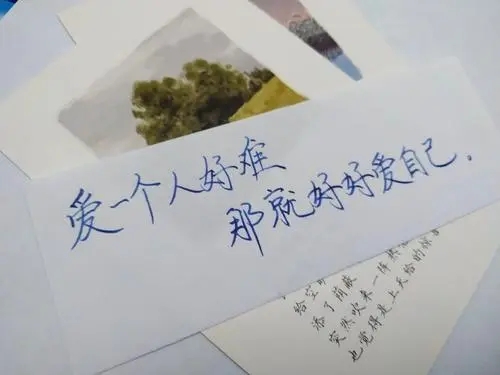 爱一个人好难
那就好好爱自己.
添了荫蔽
突然吹来一阵
也觉得是上天给的惊